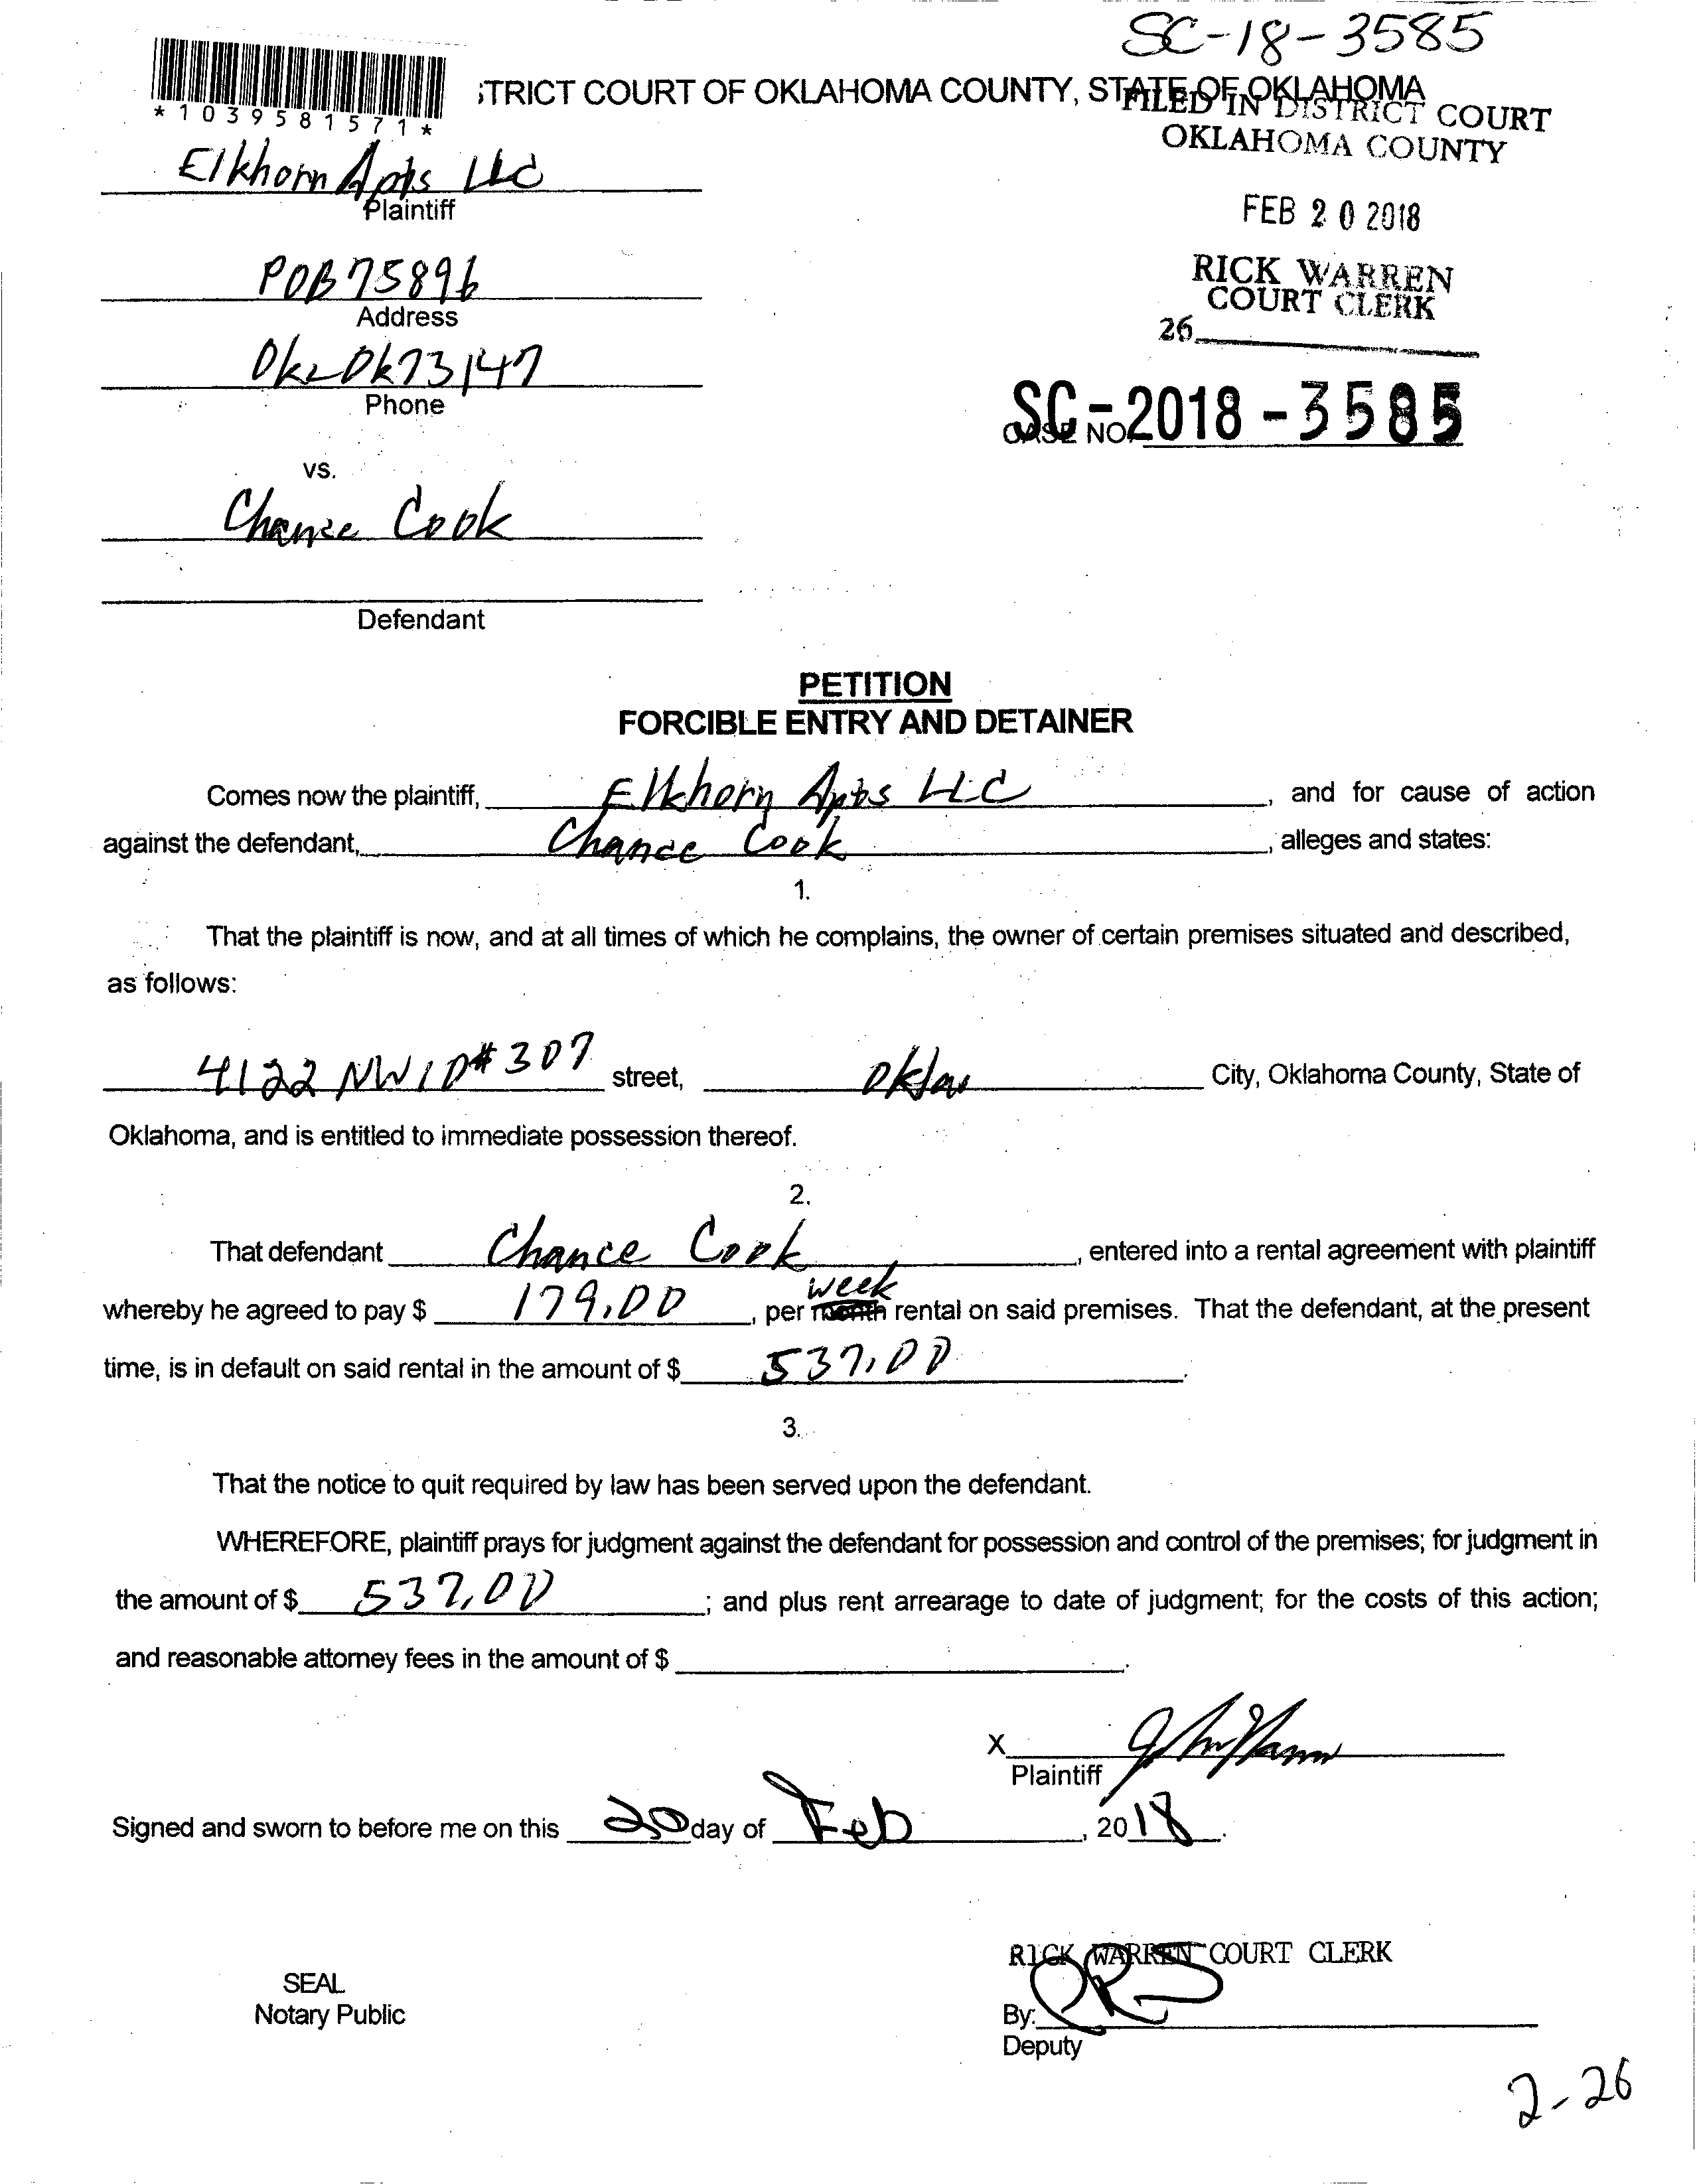 SC-18-3585
*1039581571*
STRICT COURT OF OKLAHOMA COUNTY, STATE OF OKLAHOMA
FILED IN DISTRICT COURT
OKLAHOMA COUNTY
FEB 20 2018
RICK WARREN
COURT CLERK
26
Elkhorn Apts LLC
Plaintiff
POB 75896
Address
Ok 73147
Phone
SC-2018-3585
CASE NO.
vs.
Chance Cook
Defendant
PETITION
FORCIBLE ENTRY AND DETAINER
Comes now the plaintiff, Elkhorn Apts LLC, and for cause of action
against the defendant, Chance Cook, alleges and states:
1.
That the plaintiff is now, and at all times of which he complains, the owner of certain premises situated and described,
as follows:
4122 NW 10 #307 street, Okla City, Oklahoma County, State of
Oklahoma, and is entitled to immediate possession thereof.
2.
That defendant Chance Cook, entered into a rental agreement with plaintiff
week
whereby he agreed to pay $ 179.00, per month rental on said premises. That the defendant, at the present
time, is in default on said rental in the amount of $ 537.00.
3.
That the notice to quit required by law has been served upon the defendant.
WHEREFORE, plaintiff prays for judgment against the defendant for possession and control of the premises; for judgment in
the amount of $ 537.00; and plus rent arrearage to date of judgment; for the costs of this action;
and reasonable attorney fees in the amount of $
X
Plaintiff
Signed and sworn to before me on this 20 day of Feb, 2018.
RICK WARREN COURT CLERK
SEAL
Notary Public
By:
Deputy
2-26